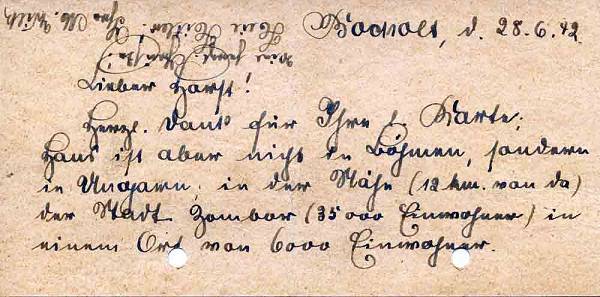 Bocholt, d. 28.6.42.
Lieber Horst!
Herzl. Dank für Ihre l. Karte;
Hans ist aber nicht in Böhmen, sondern
in Ungarn, in der Nähe (12 km. von da)
der Stadt Zombor (35000 Einwohner) in
einem Ort von 6000 Einwohner.
Heil Hitler!